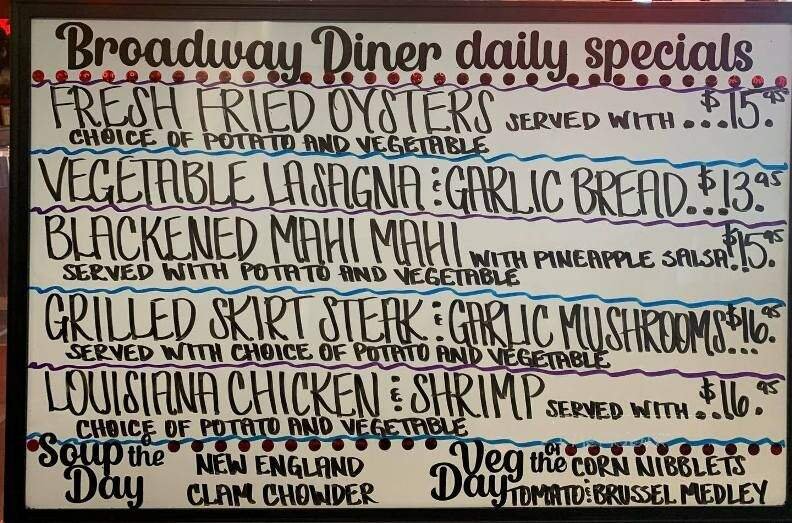 Broadway Diner daily specials
FRESH FRIED OYSTERS SERVED WITH ...$15.95
CHOICE OF POTATO AND VEGETABLE
VEGETABLE LASAGNA & GARLIC BREAD...$13.95
BLACKENED MAHI MAHI WITH PINEAPPLE SALSA..$15.95
SERVED WITH POTATO AND VEGETABLE
GRILLED SKIRT STEAK & GARLIC MUSHROOMS...$16.95
SERVED WITH CHOICE OF POTATO AND VEGETABLE
LOUISIANA CHICKEN & SHRIMP SERVED WITH ...$16.95
CHOICE OF POTATO AND VEGETABLE
Soup of the Day
NEW ENGLAND
CLAM CHOWDER
Veg of the Day
CORN NIBBLETS
TOMATO & BRUSSEL MEDLEY